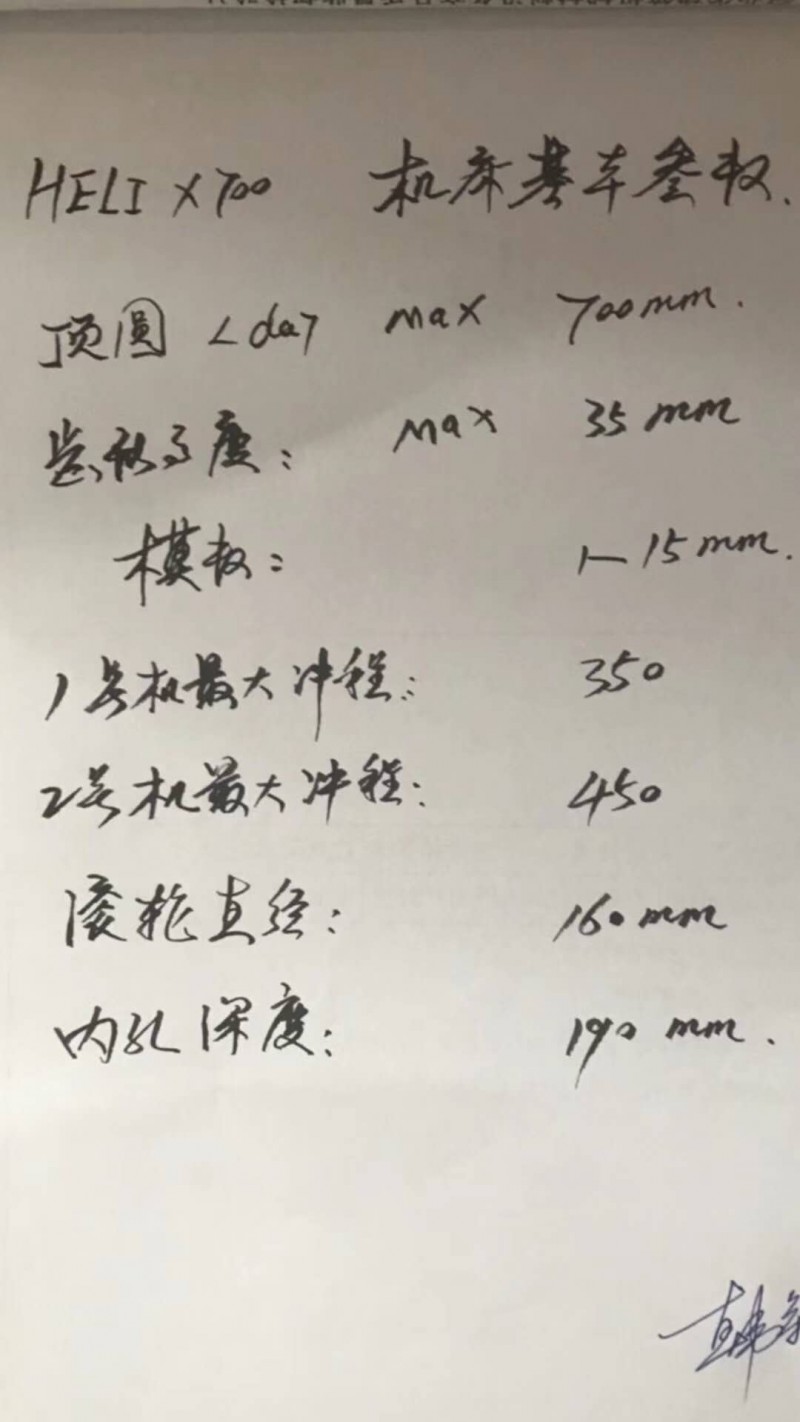 HELIX700 机床基本参数.
顶圆<da> max 700mm.
齿部高度: max 35mm
模数: 1-15mm.
1号机最大冲程: 350
2号机最大冲程: 450
滚轮直径: 160mm
内孔深度: 190mm.
韩